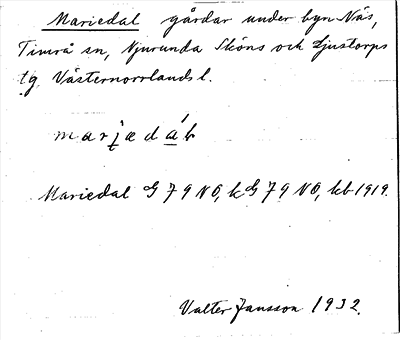 Mariedal gårdar under byn Näs,
Timrå sn, Njurunda Sköns och Ljustorps
tg. Västernorrlands l.
Mariedal G 79 NO, kG 79 NO, kb 1919.
Valter Jansson 1932.